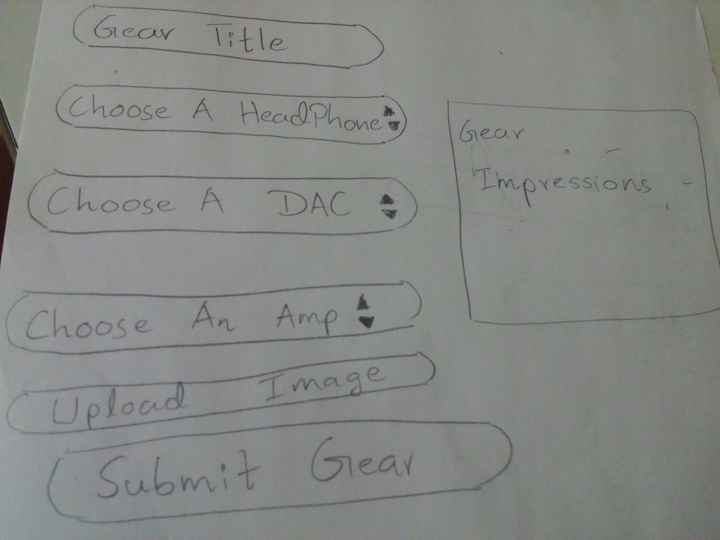 Gear Title
Choose A HeadPhone
Choose A DAC
Choose An Amp
Upload Image
Submit Gear
Gear
Impressions